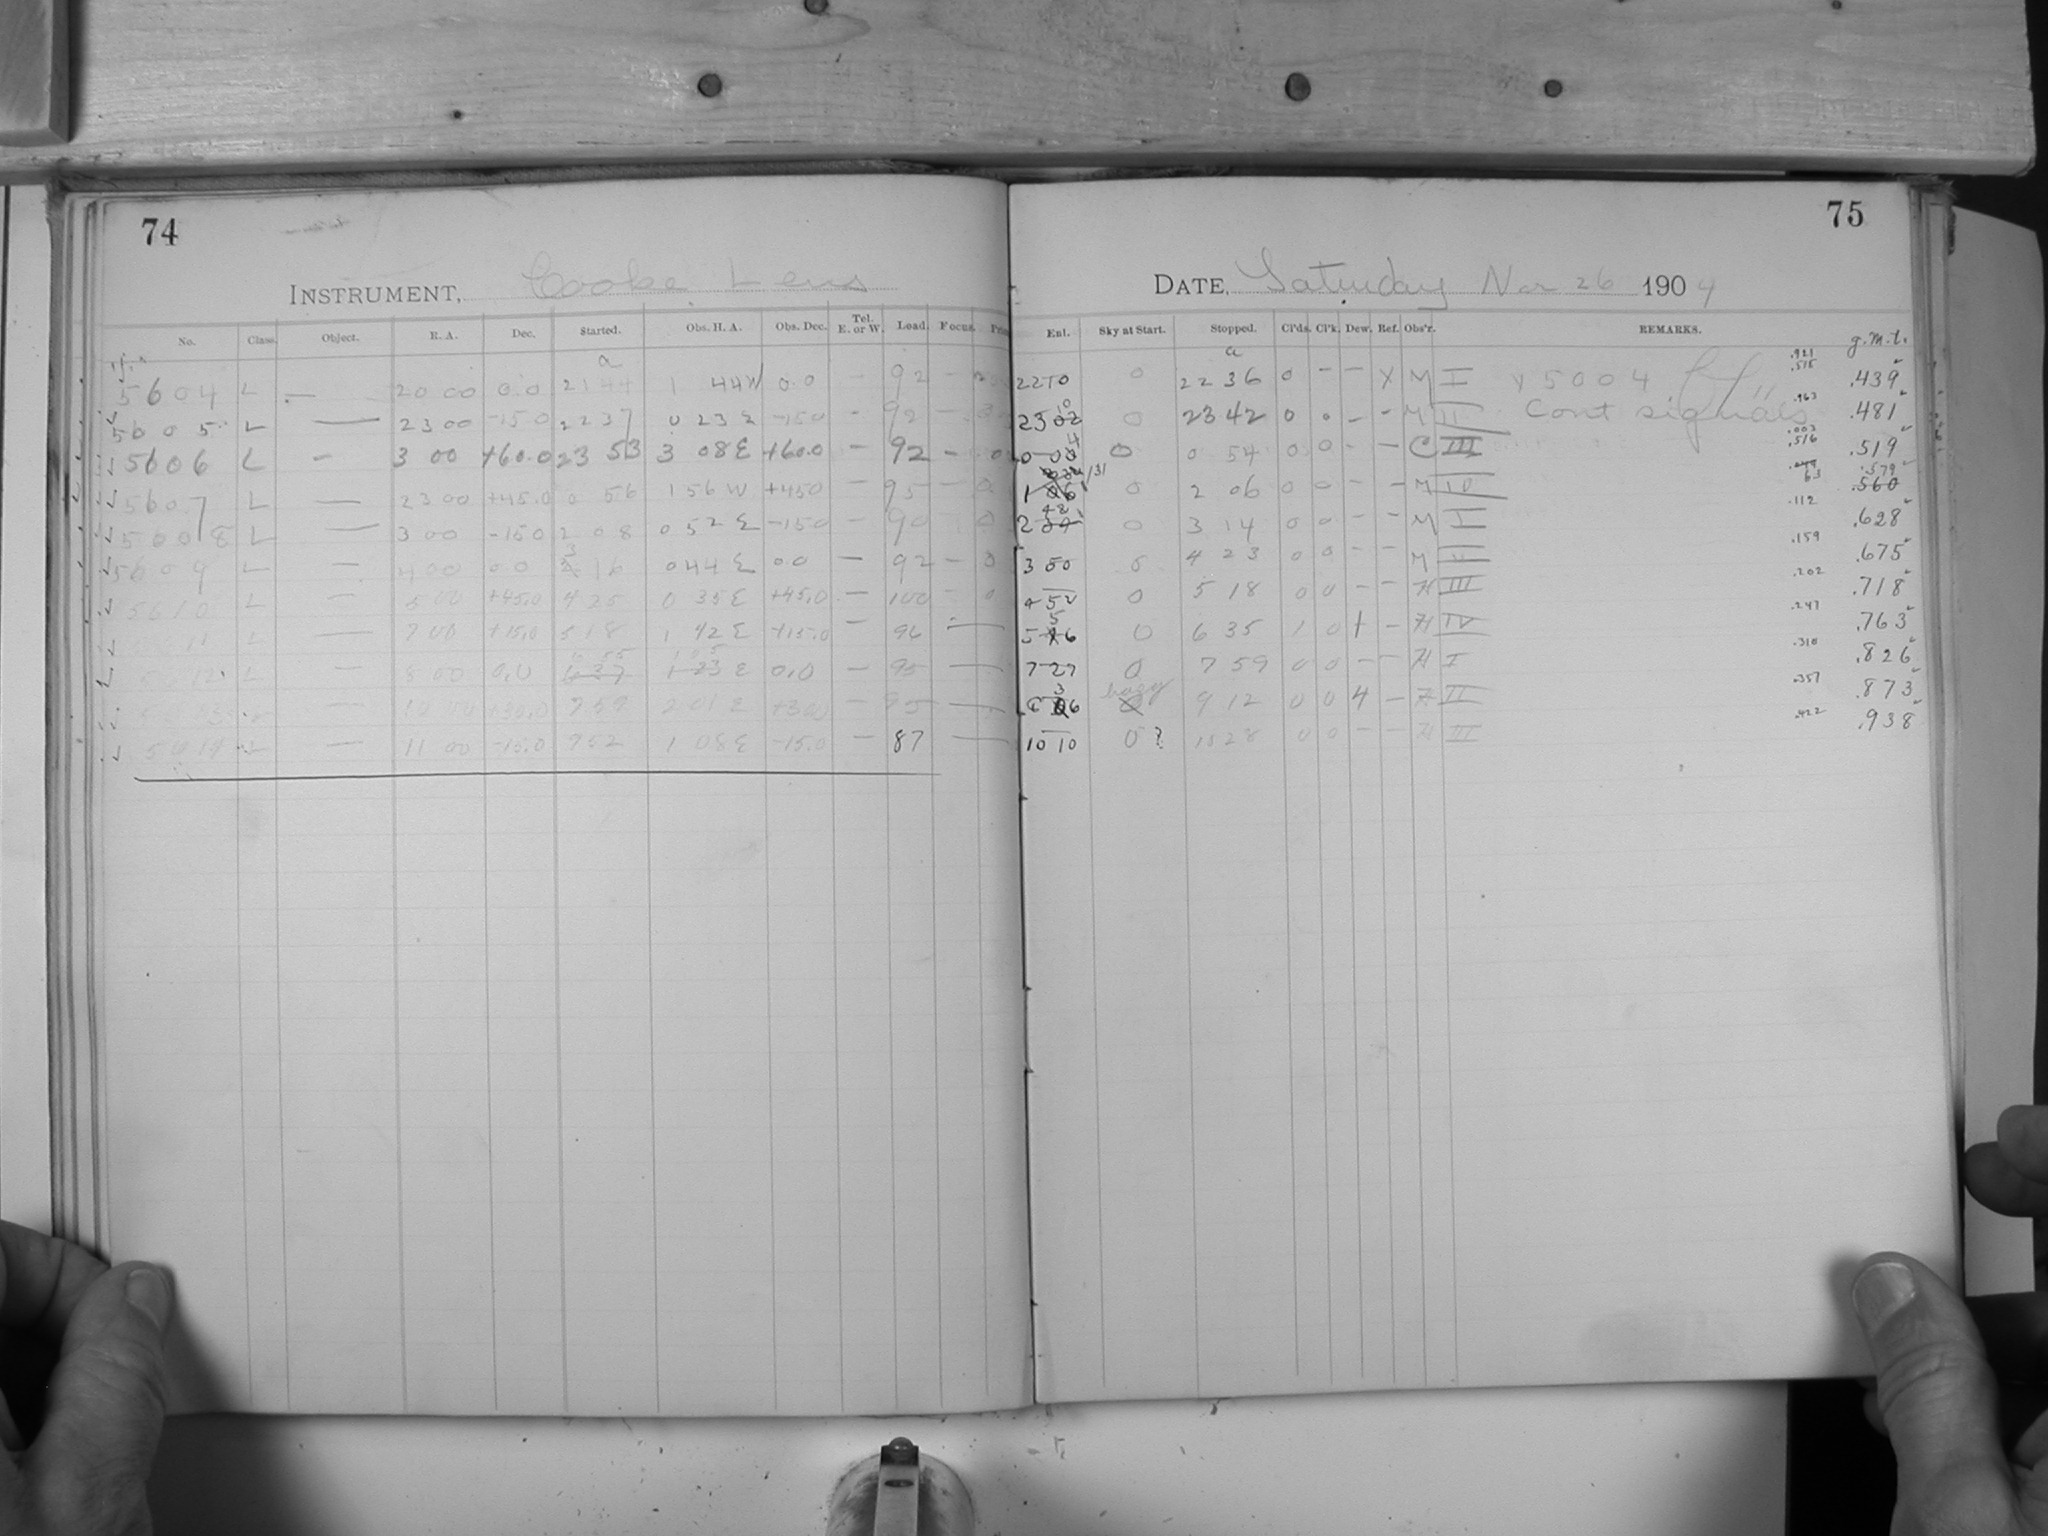 74
INSTRUMENT, Cooke Lens
No. Class. Object. R. A. Dec. Started. Obs. H. A. Obs. Dec. Tel. E. or W. Load. Focus.
a
5604 L — 20 00 0.0 21 44 1 44W 0.0 — 92 —
5605 L — 23 00 -15 0 22 37 0 23 E -15 0 — 92 —
5606 L — 3 00 +60.0 23 53 3 08E +60.0 — 92 —
5607 L — 23 00 +45.0 0 56 1 56 W +450 — 95 — 0
5608 L — 3 00 -15 0 2 08 0 52 E -150 — 90 — 0
5609 L — 4 00 0 0 3 16 0 44 E 0.0 — 92 — 0
5610 L — 5 00 +45.0 4 25 0 35E +45.0 — 100 — 0
11 L — 7 00 +15.0 5 18 1 42 E +15.0 — 96 —
L — 8 00 0.0 E 0.0 — 95 —
7 59 2 01 E —
5614 L — 11 00 -15.0 9 52 1 08E -15.0 — 87 —
75
DATE, Saturday Nov 26 1904
Ent. Sky at Start. Stopped. Cl'ds. Cl'k. Dew. Ref. Obs'r. REMARKS. g.m.t.
a .921
2210 0 22 36 0 — — X M I X 5004 .515 .439
23 0 23 42 0 0 — — M II Cont signals .963 .481
0 0 0 54 0 0 — — C III .003 .516 .519
131 0 2 06 0 0 — — M IV .579 .560
2 48 0 3 14 0 0 — — M I .112 .628
3 50 0 4 23 0 0 — — M II .159 .675
4 52 0 5 18 0 0 — — H III .202 .718
5 0 6 35 1 0 + — H IV .247 .763
7 27 0 7 59 0 0 — — H I .310 .826
hazy 9 12 0 0 4 — H II .357 .873
10 10 0 ? 10 28 0 0 — — H III .422 .938